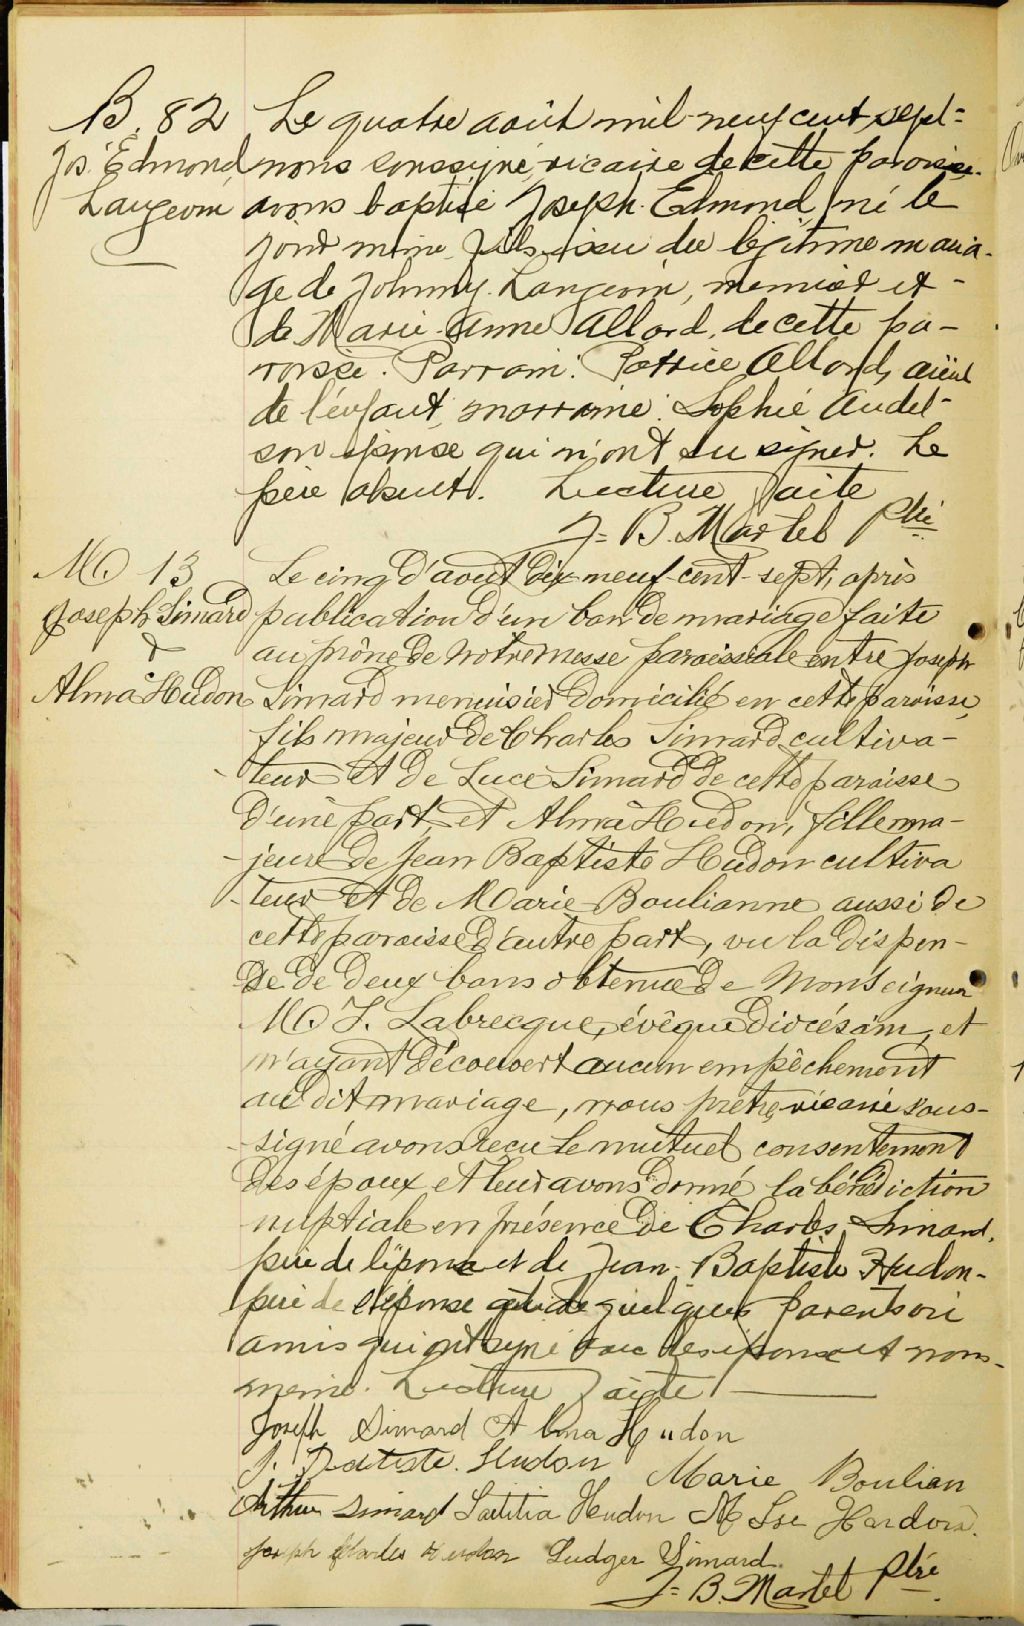 B. 82
Jos. Edmond
Langevin
Le quatre août mil-neuf cent-sept-
nous soussigné, vicaire de cette paroisse.
avons baptisé Joseph-Edmond, né le
jour même fils issu du légitime maria-
ge de Johnny Langevin, menuisier et-
de Marie-Anne Allard, de cette pa-
roisse. Parrain: Patrice Allard, aïeul
de l'enfant, marraine: Sophie Audet-
son épouse qui n'ont su signer. Le
père absent. Lecture faite
J=B. Martel Ptre
M. 13
Joseph Simard
&
Alma Hudon
Le cinq d'août Dix-neuf-cent-sept, après
publication d'un ban de mariage faite
au prône de notre messe paroissiale entre Joseph
Simard menuisier domicilié en cette paroisse,
fils majeur de Charles Simard cultiva-
teur et de Luce Simard de cette paroisse
d'une part, et Alma Hudon, fille ma-
jeure de Jean Baptiste Hudon cultiva
-teur et de Marie Boulianne aussi de
cette paroisse d'autre part, vu la dispen-
se de deux bans obtenue de Monseigneur
M. T. Labrecque, évêque diocésain, et
n'ayant découvert aucun empêchement
au dit mariage, nous prêtre, vicaire sous-
-signé avons reçu le mutuel consentement
des époux et leur avons donné la bénédiction
nuptiale en présence de Charles Simard,
père de l'époux et de Jean-Baptiste Hudon-
père de l'épouse et de quelques parents ou
amis qui ont signé avec les époux et nous-
même. Lecture faite
Joseph Simard Alma Hudon
J. Batiste. Hudon Marie Boulian
Arthur Simard Laetitia Hudon M Lse
Joseph Charles Hudon Ludger Simard.
J=B. Martel Ptre